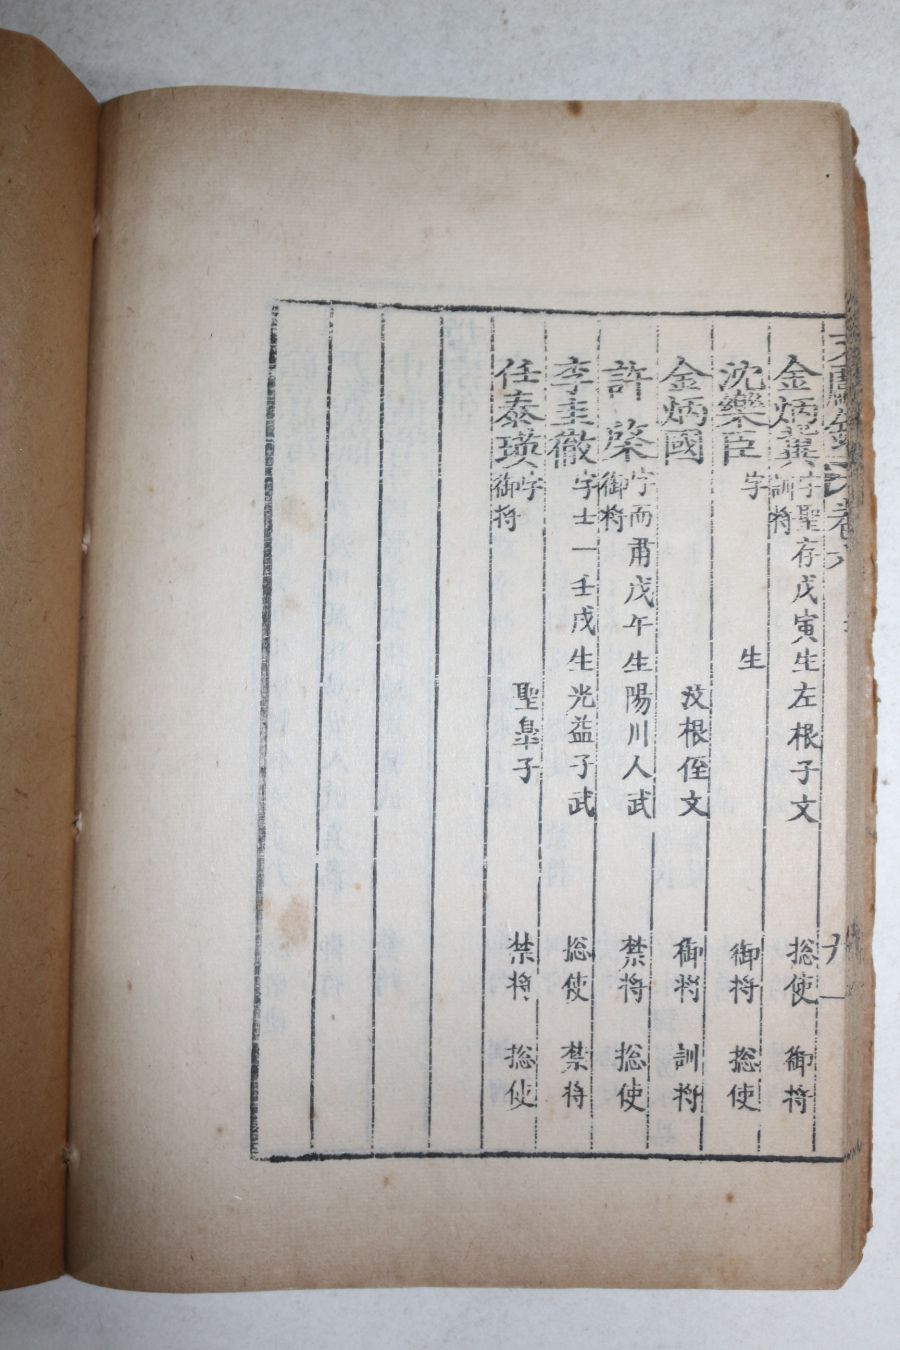 卷六
金炳冀字聖存戊寅生左根子文 捴使 御將
訓將
沈樂臣字 生 御將 捴使
金炳國 汶根侄文 御將 訓將
許棨字而肅戊午生陽川人武 禁將 捴使
御將
李圭徹字士一壬戌生光益子武 捴使 禁將
任泰瑛字 聖臯子 禁將 捴使
御將